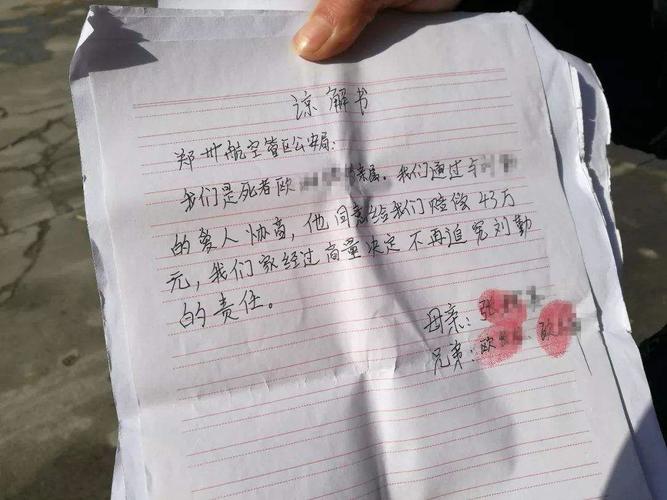 谅解书
郑州航空管区公安局:
我们是死者欧 家属。我们通过与
的爱人协商,他同意给我们赔偿43万
元,我们家经过商量决定不再追究刘勤
的责任。
母亲:张
兄弟:欧 欧